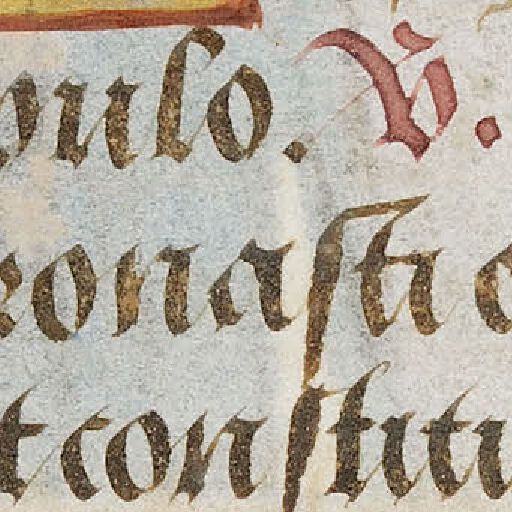 pulo. V̄.
ronasti
t constitu